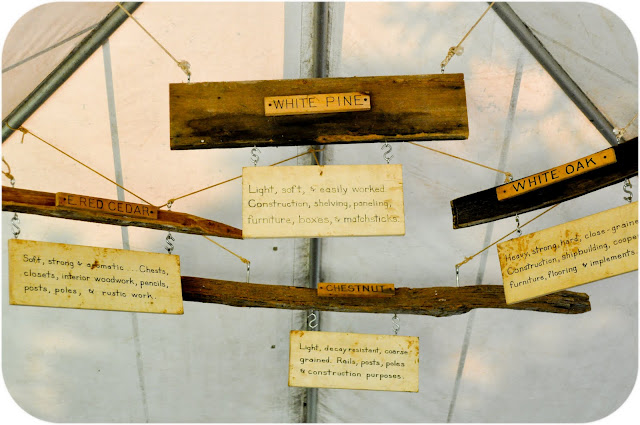 WHITE PINE
Light, soft, & easily worked.
Construction, shelving, paneling,
furniture, boxes, & matchsticks.
E. RED CEDAR
Soft, strong & aromatic.... Chests,
closets, interior woodwork, pencils,
posts, poles, & rustic work.
WHITE OAK
Heavy, strong, hard, close-graine
Construction, shipbuilding, coope
furniture, flooring & implements.
CHESTNUT
Light, decay resistent, coarse
grained. Rails, posts, poles
& construction purposes.